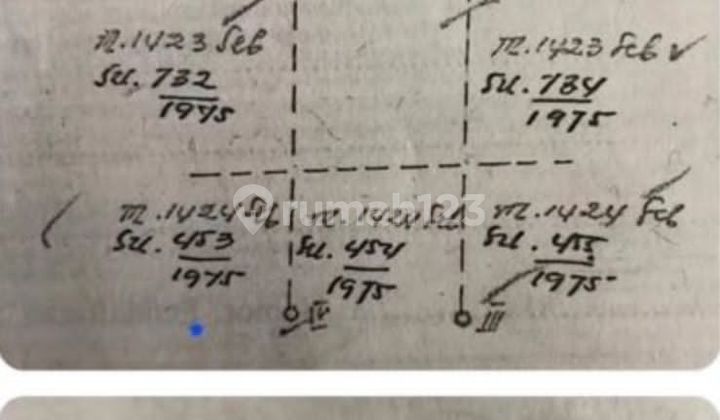 M.1423 Seb
Su. 732
1975
M.1423 Seb
Su. 734
1975
M.1424 Seb
Su. 453
1975
M.1424 Seb
Su. 454
1975
M.1424 Seb
Su. 455
1975
IV
III
rumah123